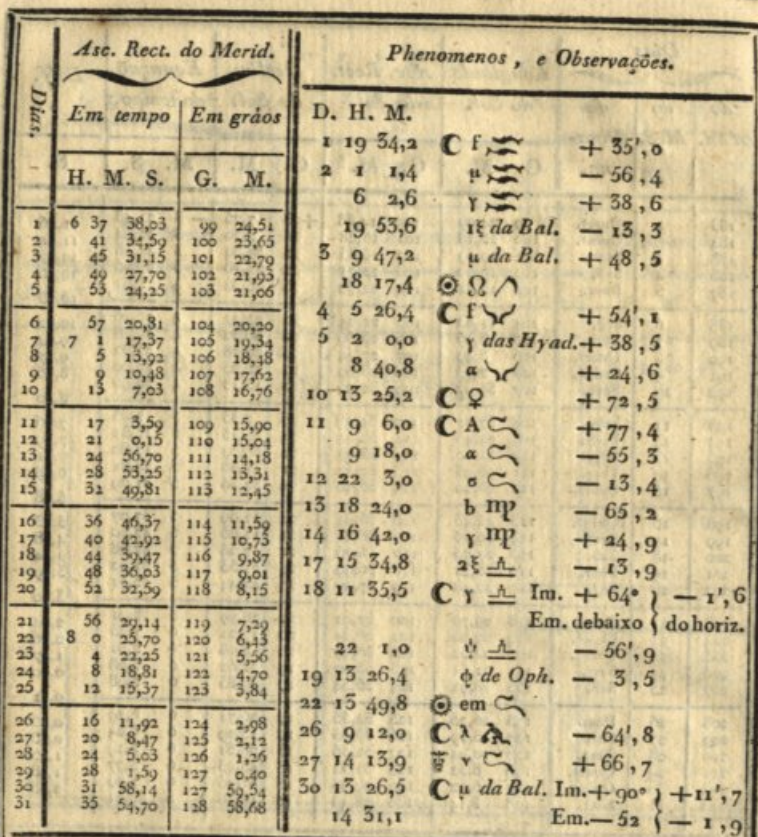 Asc. Rect. do Merid.
Dias.
Em tempo Em gráos
H. M. S. G. M.
1 6 37 38,03 99 24,51
2 41 34,59 100 23,65
3 45 31,15 101 22,79
4 49 27,70 102 21,93
5 53 24,25 103 21,06
6 57 20,81 104 20,20
7 7 1 17,37 105 19,34
8 5 13,92 106 18,48
9 9 10,48 107 17,62
10 13 7,03 108 16,76
11 17 3,59 109 15,90
12 21 0,15 110 15,04
13 24 56,70 111 14,18
14 28 53,25 112 13,31
15 32 49,81 113 12,45
16 36 46,37 114 11,59
17 40 42,92 115 10,73
18 44 39,47 116 9,87
19 48 36,03 117 9,01
20 52 32,59 118 8,15
21 56 29,14 119 7,29
22 8 0 25,70 120 6,43
23 4 22,25 121 5,56
24 8 18,81 122 4,70
25 12 15,37 123 3,84
26 16 11,92 124 2,98
27 20 8,47 125 2,12
28 24 5,03 126 1,26
29 28 1,59 127 0.40
30 31 58,14 127 59,54
31 35 54,70 128 58,68
Phenomenos, e Observações.
D. H. M.
1 19 34,2 ☾ f ♒ + 35',0
2 1 1,4 μ ♓ — 56,4
6 2,6 γ ♓ + 38,6
19 53,6 1ξ da Bal. — 13,3
3 9 47,2 μ da Bal. + 48,5
18 17,4 ☉ ☊
4 5 26,4 ☾ f ♉ + 54',1
5 2 0,0 γ das Hyad. + 38,5
8 40,8 α ♉ + 24,6
10 13 25,2 ☾ ♀ + 72,5
11 9 6,0 ☾ A ♌ + 77,4
9 18,0 α ♌ — 55,3
12 22 3,0 σ ♌ — 13,4
13 18 24,0 b ♍ — 65,2
14 16 42,0 γ ♍ + 24,9
17 15 34,8 2ξ ♎ — 13,9
18 11 35,5 ☾ γ ♎ Im. + 64° } — 1',6
Em. debaixo { do horiz.
22 1,0 ψ ♎ — 56',9
19 13 26,4 φ de Oph. — 3,5
22 13 49,8 ☉ em ♌
26 9 12,0 ☾ λ ♒ — 64',8
27 14 13,9 ν ♌ + 66,7
30 13 26,5 ☾ μ da Bal. Im. + 90° } + 11',7
14 31,1 Em. — 52 { — 1,9